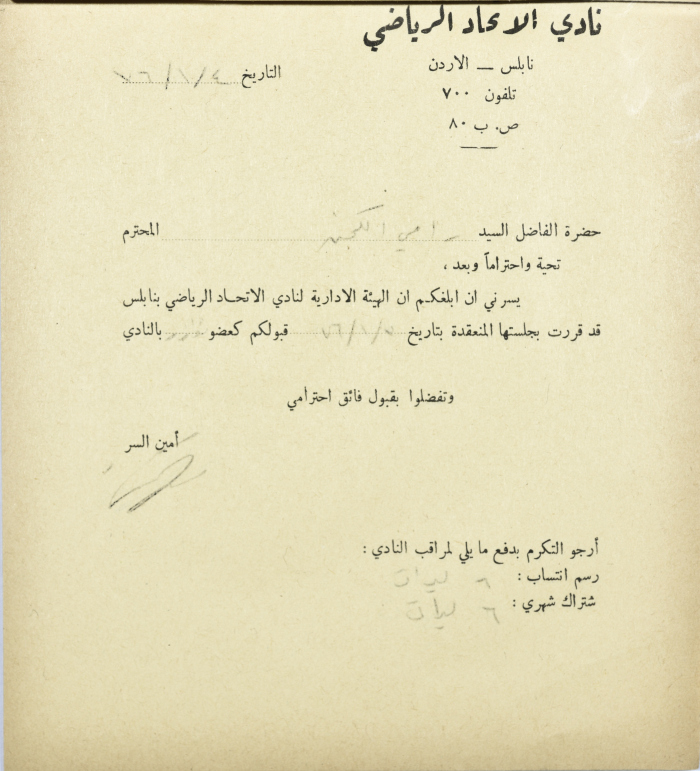 نادي الاتحاد الرياضي
نابلس — الاردن
تلفون ٧٠٠
ص. ب ٨٠
التاريخ ٧٦/١/٤
حضرة الفاضل السيد رامي المحترم
تحية واحتراماً وبعد ،
يسرني ان ابلغكم ان الهيئة الادارية لنادي الاتحاد الرياضي بنابلس
قد قررت بجلستها المنعقدة بتاريخ قبولكم كعضو بالنادي
وتفضلوا بقبول فائق احترامي
أمين السر
أرجو التكرم بدفع ما يلي لمراقب النادي :
رسم انتساب : ٦ ليرات
شتراك شهري : ٦ ليرات